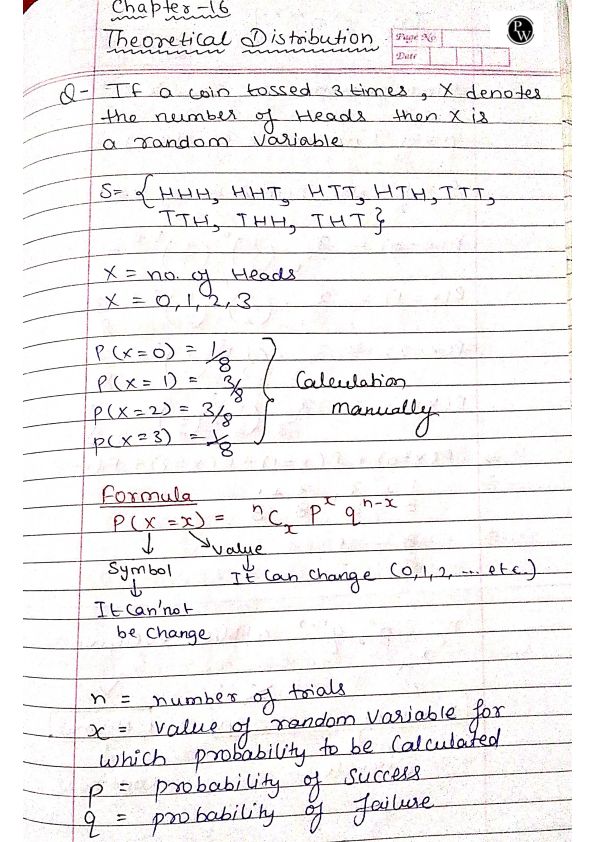 Chapter-16
Theoretical Distribution
Page No.
Date
PW
Q- If a coin tossed 3 times, X denotes
the number of Heads then X is
a random variable
S= {HHH, HHT, HTT, HTH, TTT,
TTH, THH, THT}
X = no. of Heads
X = 0, 1, 2, 3
P(X=0) = 1/8
P(X=1) = 3/8
P(X=2) = 3/8
P(X=3) = 1/8
Calculation
manually
Formula
P(X=x) = ⁿCₓ pˣ qⁿ⁻ˣ
Symbol
Value
It can'not
be change
It can change (0,1,2, ... etc.)
n = number of trials
x = value of random variable for
which probability to be calculated
p = probability of success
q = probability of failure